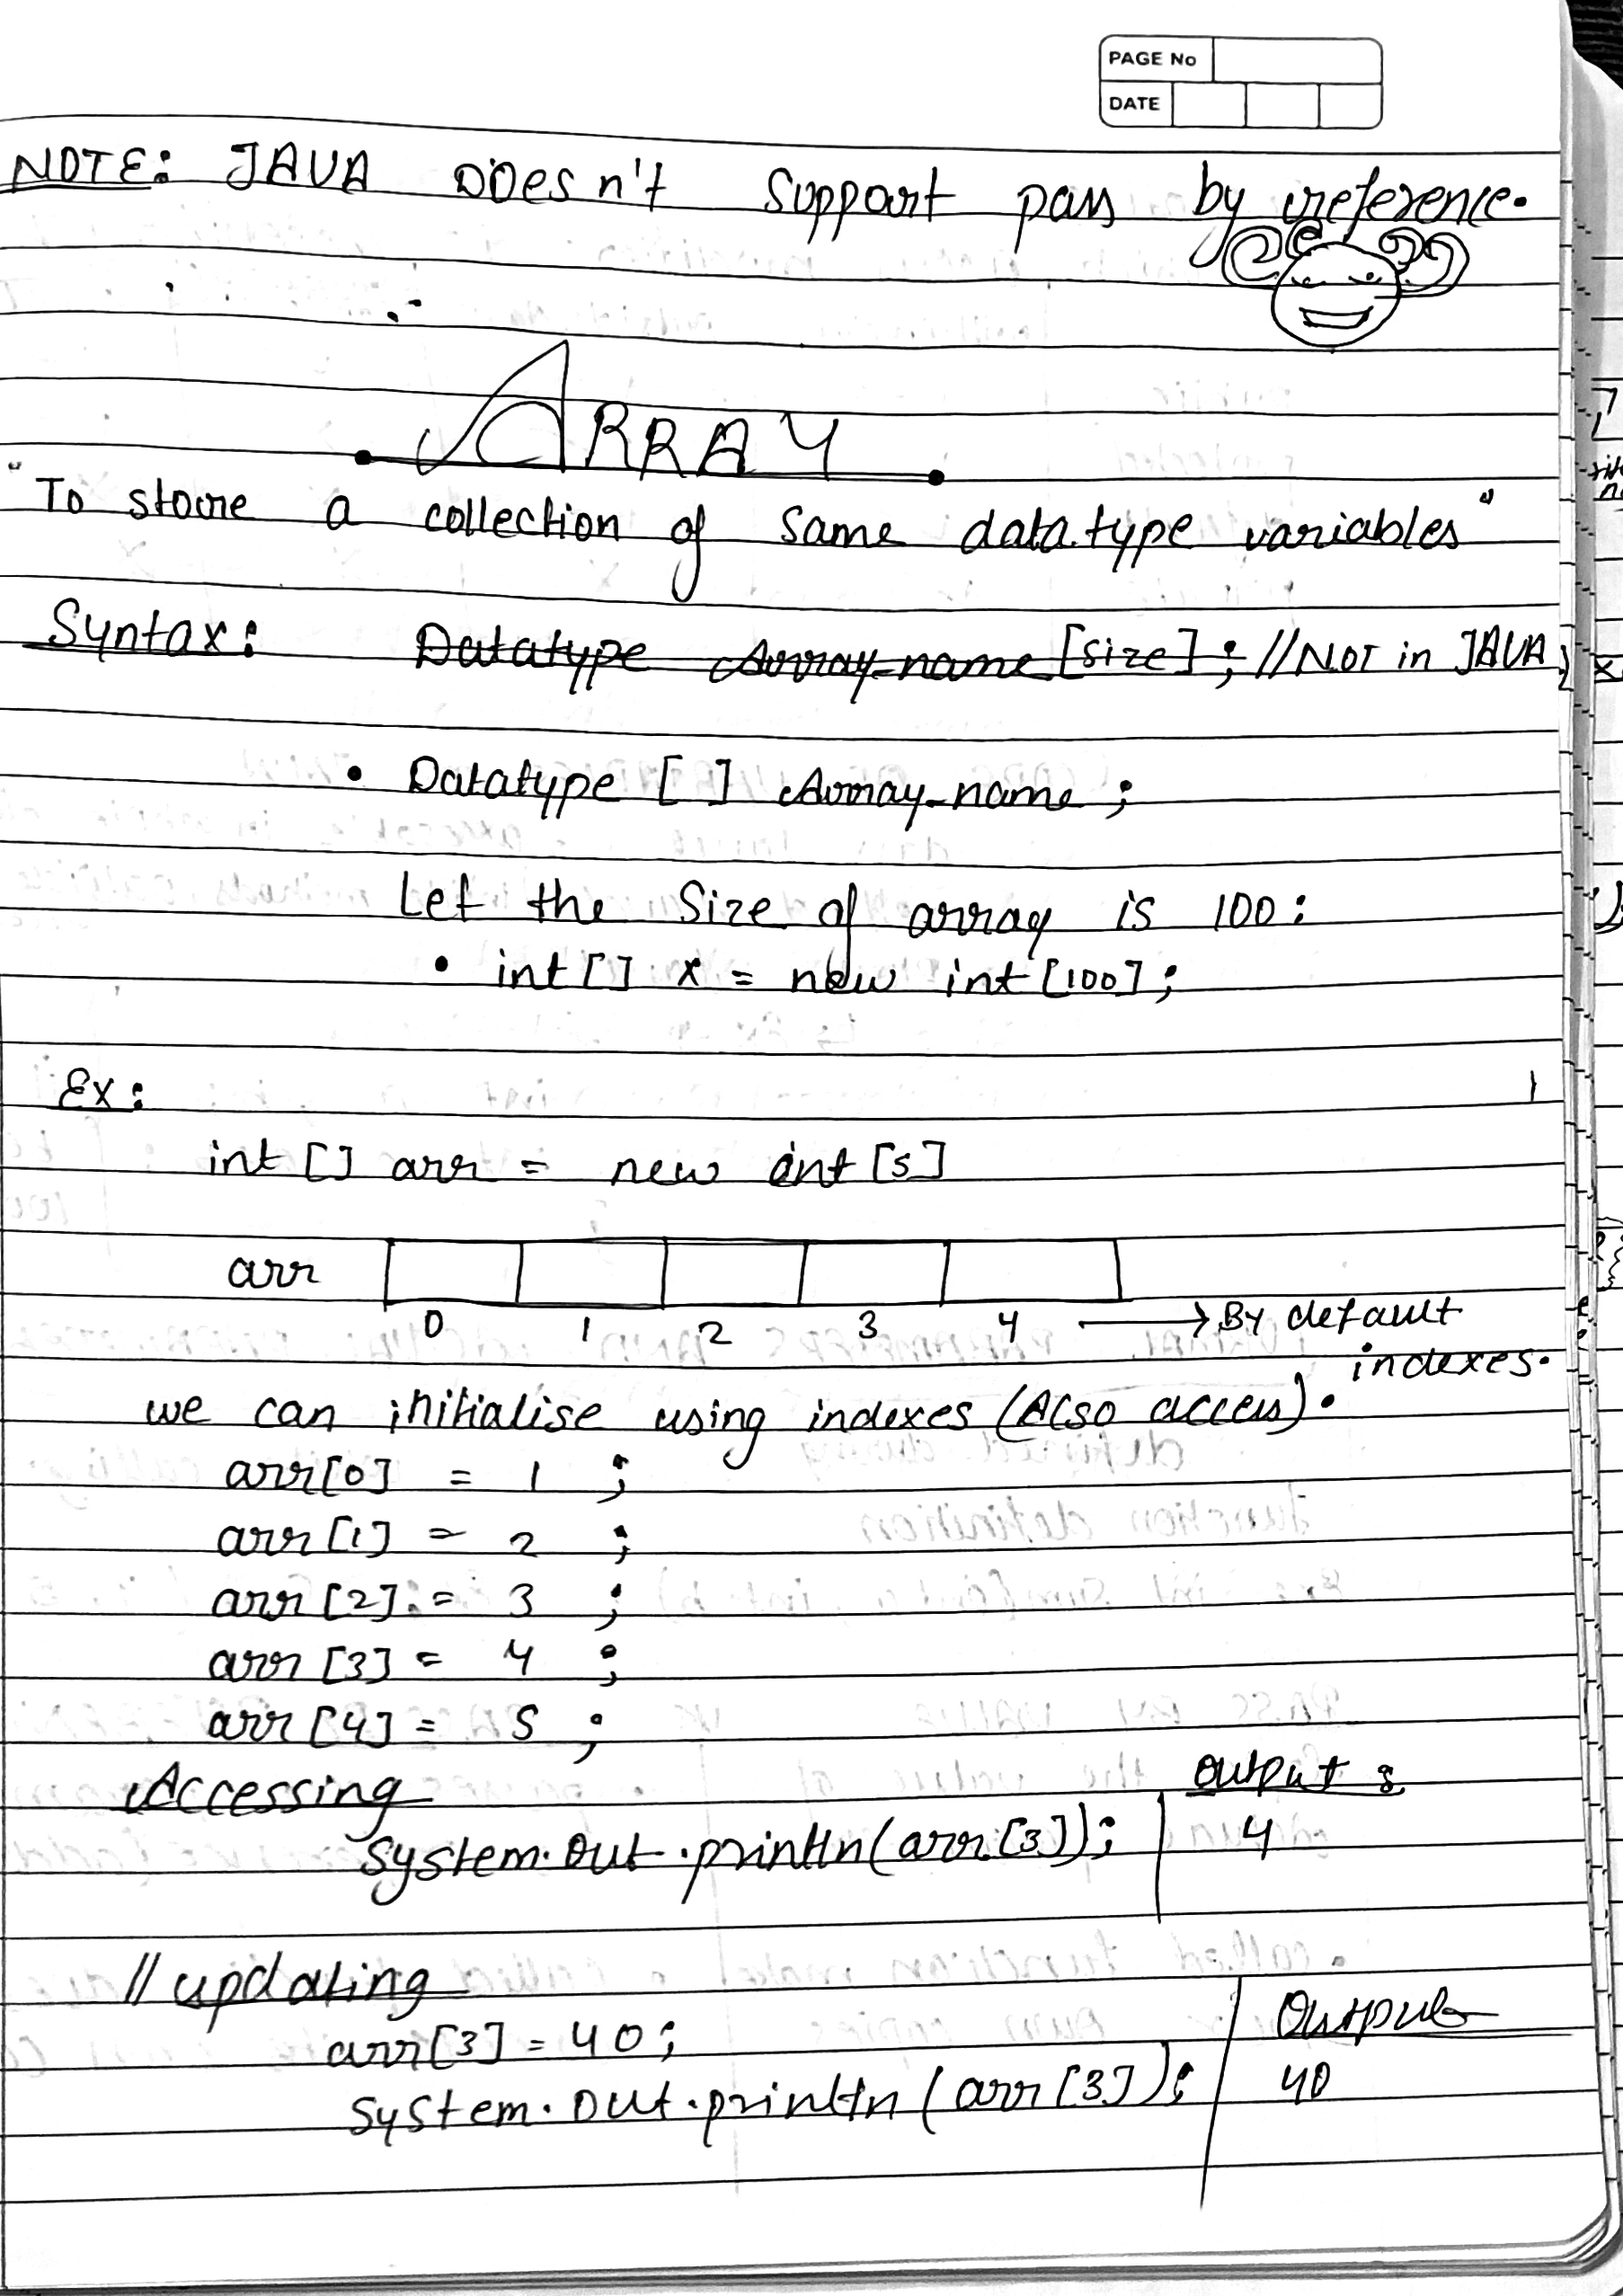 PAGE No
DATE
NOTE: JAVA DOesn't support pass by reference.
ARRAY
"To store a collection of same datatype variables"
Syntax: Datatype Array_name [size]; //NOT in JAVA
• Datatype [ ] Array_name ;
Let the size of array is 100:
• int [] x = new int [100];
Ex:
int [] arr = new int [5]
arr
0 1 2 3 4 → By default
indexes.
we can initialise using indexes (Also access).
arr[0] = 1 ;
arr [1] = 2 ;
arr [2] = 3 ;
arr [3] = 4 ;
arr [4] = 5 ;
Accessing
Output :
System.out.println(arr[3]); 4
// updating
Output
arr[3] = 40;
System.out.println (arr [3]); 40